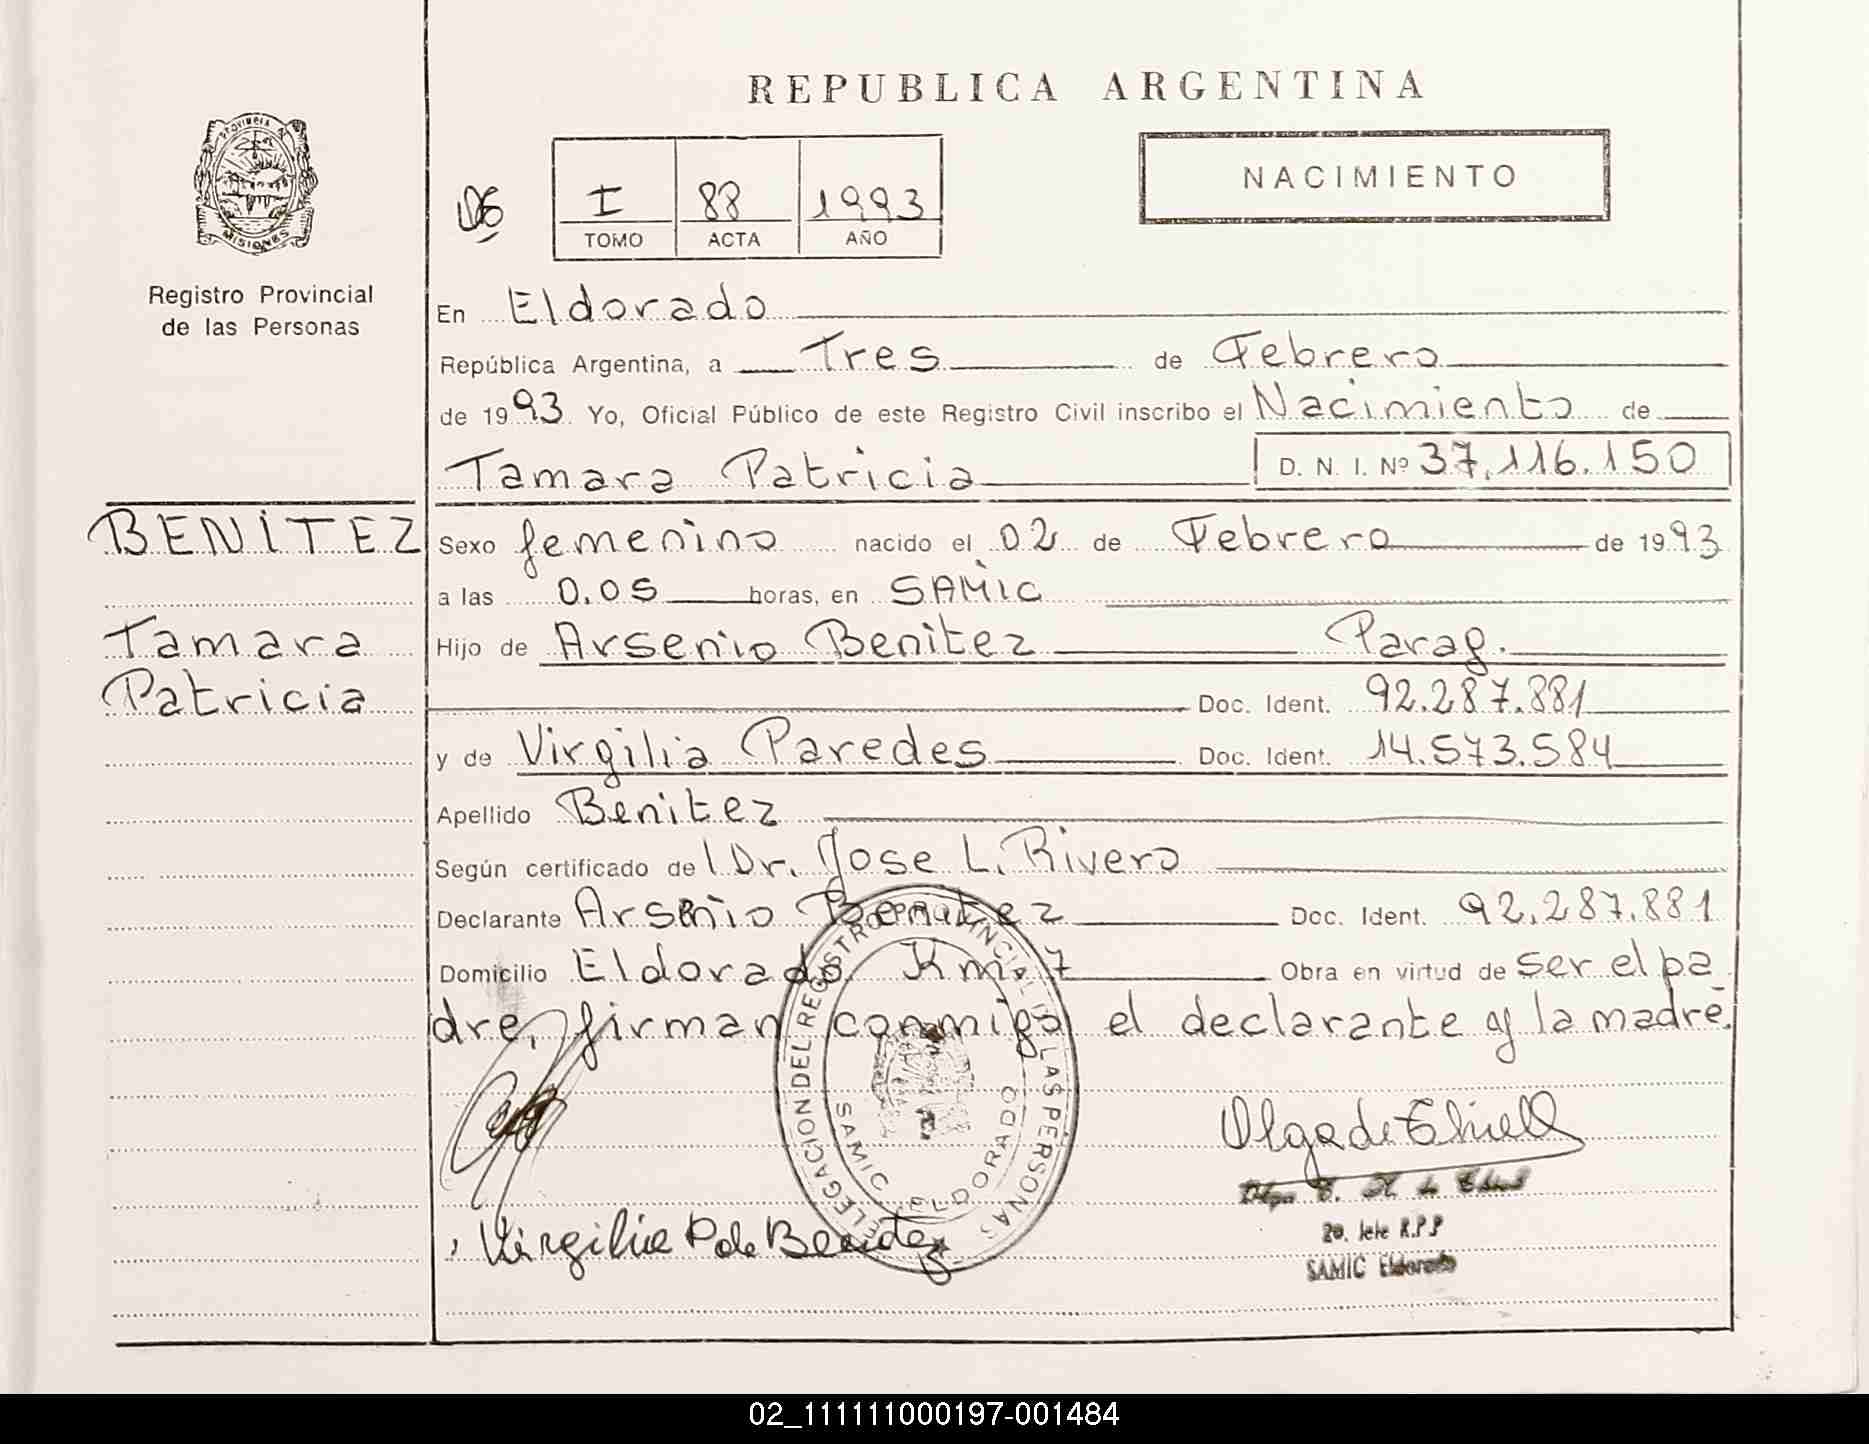 REPUBLICA ARGENTINA
PROVINCIA
MISIONES
Registro Provincial
de las Personas
I 88 1993
TOMO ACTA AÑO
NACIMIENTO
En Eldorado
República Argentina, a Tres de Febrero
de 1993 Yo, Oficial Público de este Registro Civil inscribo el Nacimiento de
Tamara Patricia D. N. I. Nº 37.116.150
BENITEZ
Tamara
Patricia
Sexo femenino nacido el 02 de Febrero de 1993
a las 0.05 horas, en SAMIC
Hijo de Arsenio Benitez Parag.
Doc. Ident. 92.287.881
y de Virgilia Paredes Doc. Ident. 14.573.584
Apellido Benitez
Según certificado de Dr. Jose L. Rivero
Declarante Arsenio Benitez Doc. Ident. 92.287.881
Domicilio Eldorado Km. 7 Obra en virtud de ser el pa
dre, firman conmigo el declarante y la madre.
DELEGACION DEL REGISTRO PROVINCIAL DE LAS PERSONAS
SAMIC ELDORADO
Olga de
Virgilia P de Benitez
2o. Jefe R.P.P
SAMIC Eldorado
02_111111000197-001484